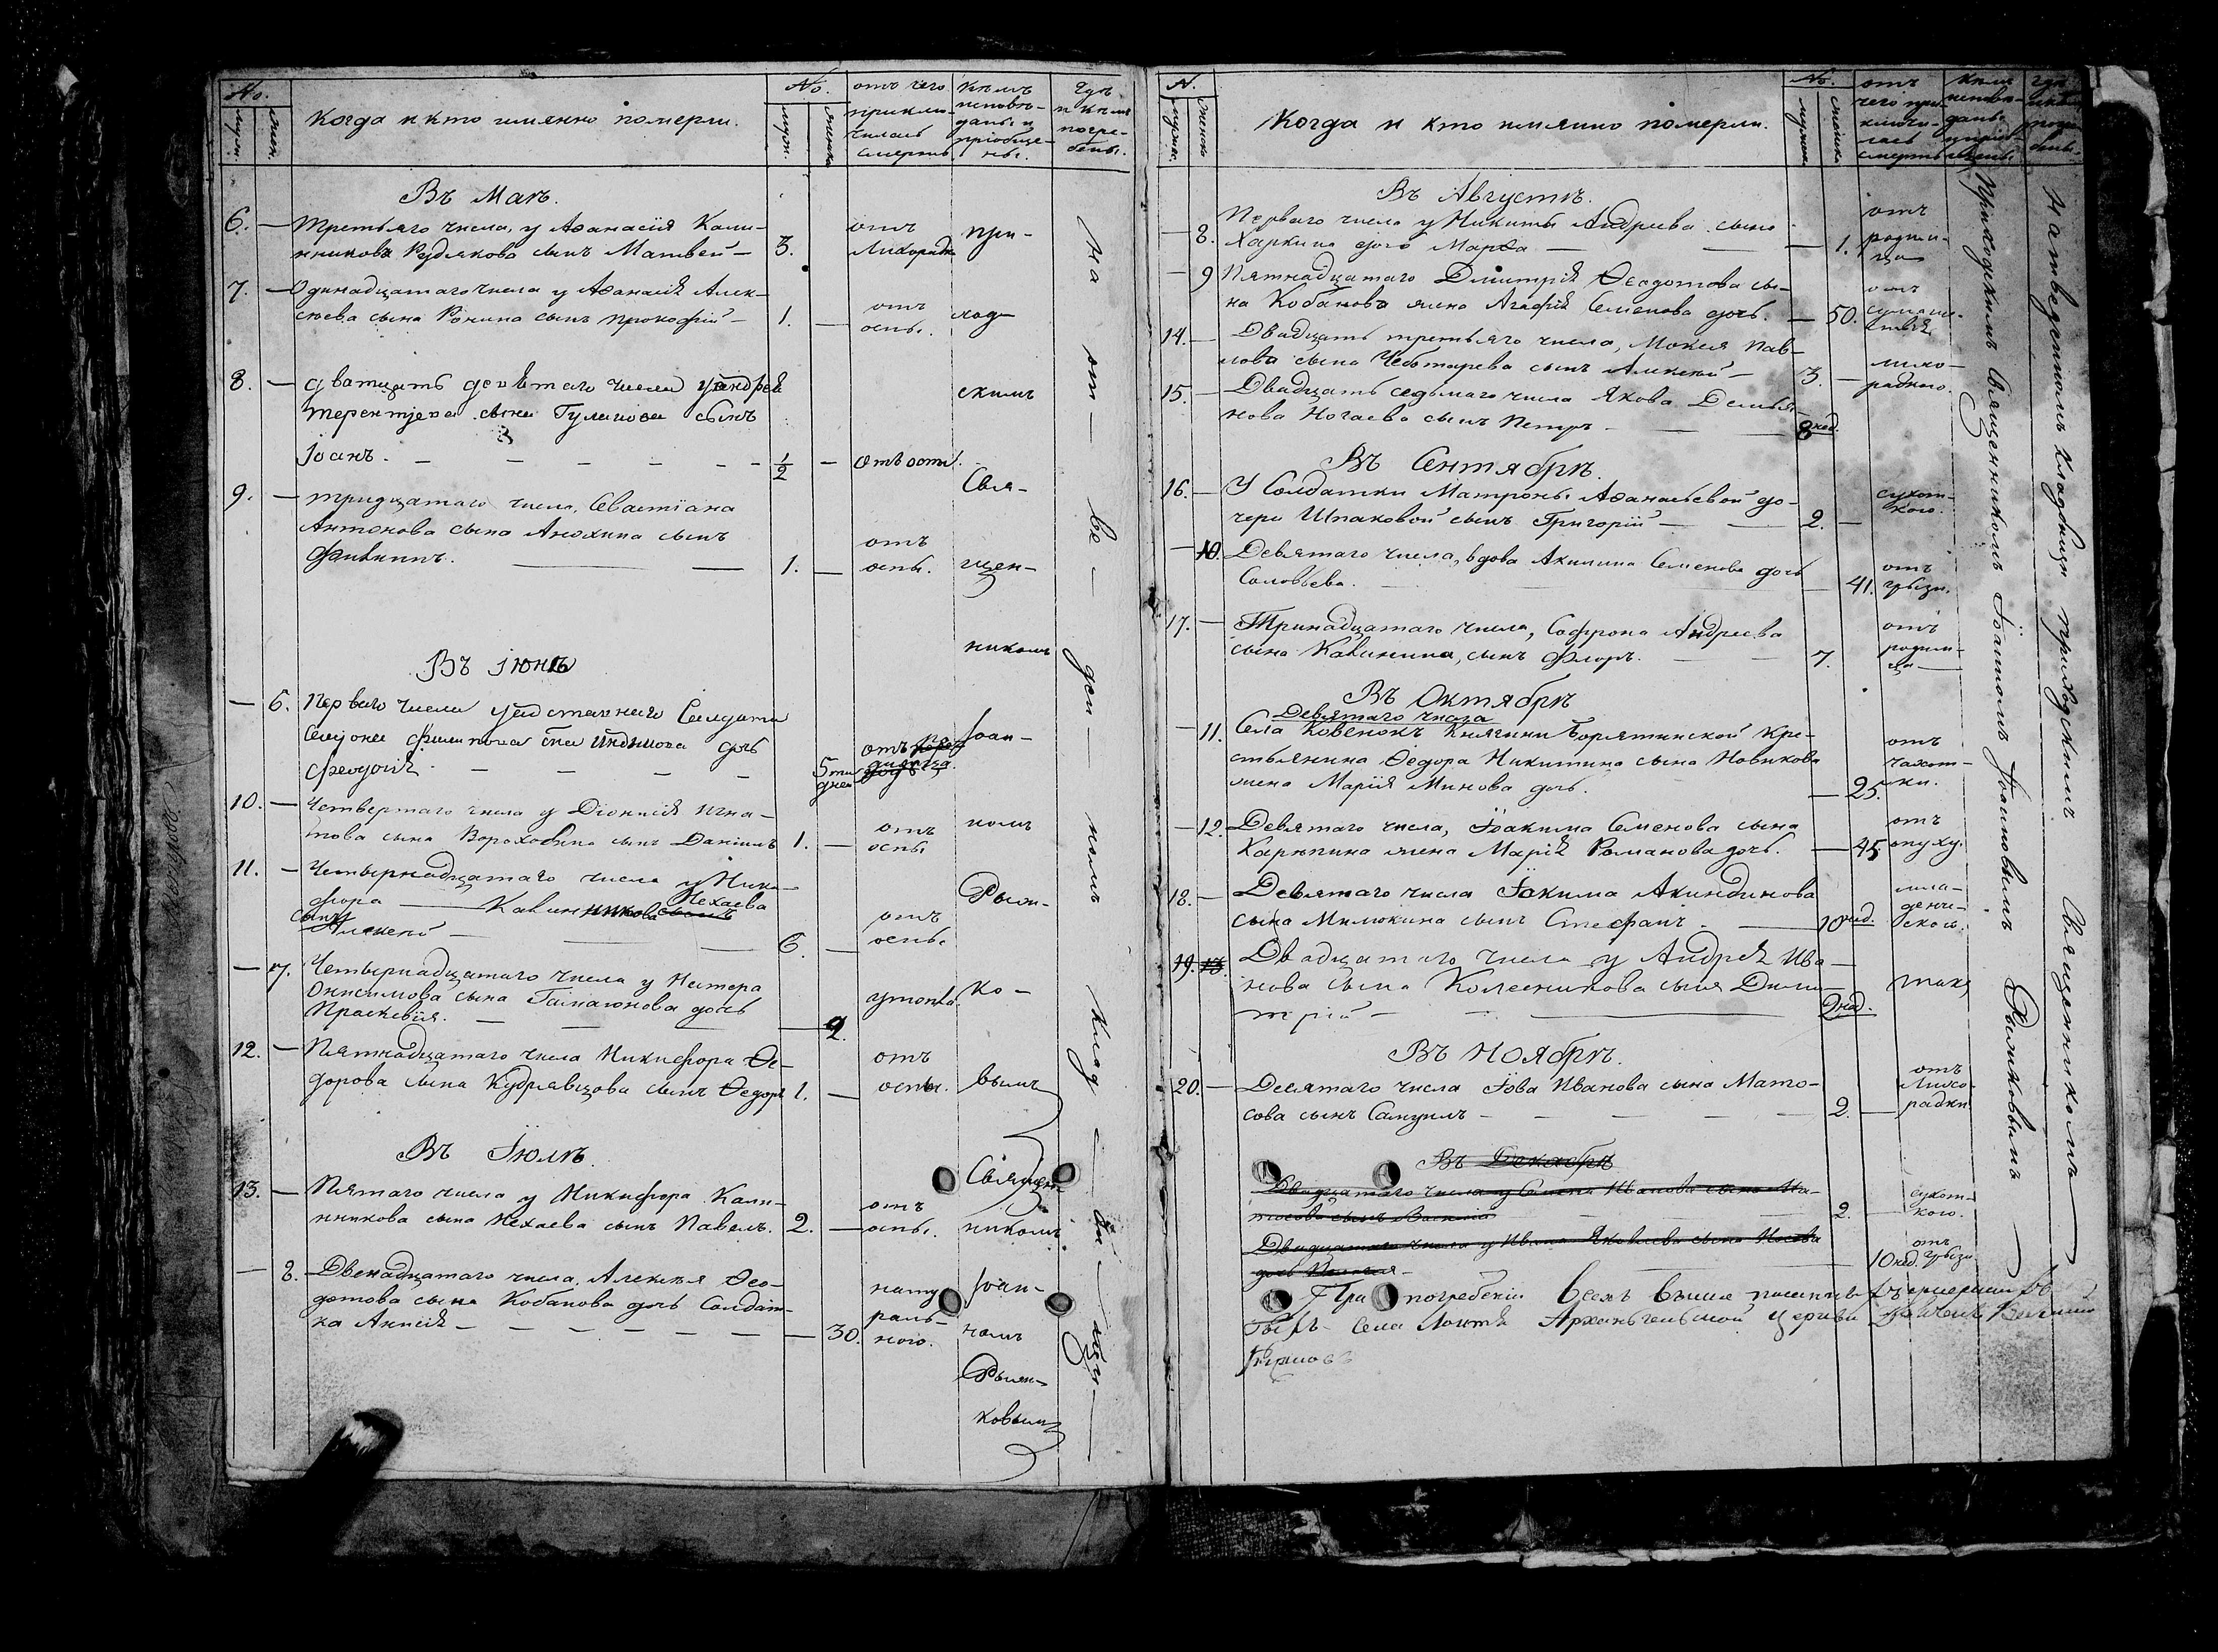 No.
мужи.
женс.
Когда и кто имянно померли.
No.
мужи.
женска
отъ чего
приклю-
чилась
смерть
Кѣмъ
исповѣ-
даны и
пріобще-
ны.
Гдѣ
и кѣмъ
погре-
бены.
Въ Маѣ.
6. — Третьяго числа, у Аѳанасія Кали-
нникова Рудлкова сынъ Матвей — 3.
отъ
Лихорадк
7. — Одинадцатаго числа у Аѳанасія Алек-
сѣева сына Ронина сынъ Прокофій — 1. —
отъ
оспы.
8. — дватцать девѣтаго числа уандрея
терентjева сына Гулинова сынъ
Jоанъ. — — — — — 1/2 — отъ оспы.
9. — тридцатаго числа, Севастіана
Антонова сына Анохина сынъ
Филипъ. — — 1. —
отъ
оспы.
Въ Iюнѣ
— 6. Перваго числа уотставнаго Салдата
филипова дочь
Феодосія — — — — 5ти дней
10. — Четвертаго числа у Діонисія Игна-
това сына Ворохобина сынъ Даніилъ 1. —
отъ
оспы
11. — Четырнадцатаго числа у Ники-
фора — Калинникова Нехаева
сынъ
Алексѣй — — — 6. —
отъ
оспы.
— 7. Четырнадцатаго числа у Нестера
Онисимова сына дочь
Праскевія. — — — 9.
утопла.
12. — Пятнадцатаго числа Никифора Ѳе-
дорова сына Кудрявцова сынъ Ѳедоръ 1. —
отъ
оспы.
Въ Iюлѣ.
13. — Пятаго числа у Никифора Кали-
нникова сына Нехаева сынъ Павелъ. 2. —
отъ
оспы.
— 8. Двенадцатаго числа, Алексѣя Ѳео-
дотова сына Кобанова дочь Солдат-
ка Анисія — — — — — 30.
нату
раль-
ного.
при-
ход-
скимъ
Свя-
щен-
никомъ
Iоан-
номъ
Рыли-
ко-
вымъ
Священ-
никомъ
Iоан-
номъ
Рылин-
ковымъ
На от — ве — ден — номъ клад — би — щѣ —
N.
мужис.
женско
Когда и кто имянно померли.
No.
мужиск
женска
отъ
чего при-
ключи-
лась
смерть
Кѣмъ
испове-
даны
Въ Августѣ.
— 8. Перваго числа у Никиты Андрѣева сына
Харкина дочь Марѳа — — 1.
отъ
родим-
ца
— 9 Пятнадцатаго Димитрія Ѳеодотова сы-
на Кобанова жена Агафія Семенова дочь. — 50.
отъ
сумаше-
ствія
14. — Двадцать третьяго числа, Мокея Пав-
лова сына Чеботарева сынъ Алексѣй — 3. —
лихо-
радкого.
15. — Двадцать седьмаго числа Якова Демья-
нова Ногаева сынъ Петръ. — — 8 нед.
Въ Сентябрѣ.
16. — У Солдатки Матроны Аѳанасьевой до-
чери Шпаковой сынъ Григорій — — 2. —
сухот-
кого.
— 10. Девятаго числа, вдова Акилина Семенова дочь
Соловьева. — — 41.
отъ
грызи.
17. — Тринадцатаго числа, Софрона Андреева
сына Калинина, сынъ Флоръ. — — 7.
отъ
родим-
ца —
Въ Октябрѣ
Девятаго числа
— 11. Села Ковенокъ Княгини Борятинской Кре-
стьянина Ѳедора Никитина сына Новикова
жена Марія Минова дочь. — 25.
отъ
чахот-
ки.
— 12. Девятаго числа, Iоакима Семенова сына
Карпкина жена Марія Романова дочь. — 45
отъ
опуху.
18. — Девятаго числа Iокима Акиндинова
сына Милюкина сынъ Стефанъ. — 10 нед.
мла-
денче-
ского.
19. 13. Двадцатаго числа у Андрея Ива-
нова сына Колесникова сынъ Дими-
трій — — — 2 нед.
такж
Въ Ноябрѣ.
20. — Десятаго числа Iова Иванова сына Мато-
сова сынъ Самуилъ — — — — 2. —
отъ
Лихо-
радки.
Въ Декабрѣ
Двадцатаго числа у Семена Иванова сына Ма-
тосова сынъ Василій — — 2. —
сухот-
кого.
Двадцатаго числа у Ивана Яковлева сына Носова
дочь — 10 нед.
отъ
грызи
При погребеніи всехъ выше писанныхъ умершихъ
былъ села Архангельской церкви
Приходскимъ Священникомъ Iоанномъ Iоанновымъ Рылиновымъ —
На отведенномъ кладбищи приходскимъ Священникомъ —